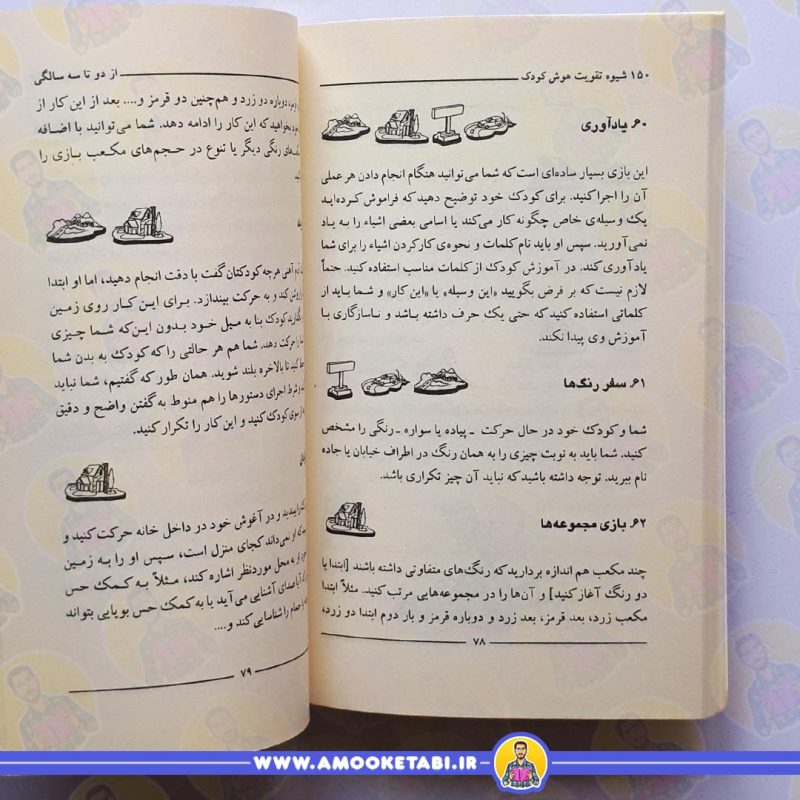 ۱۵۰ شیوه تقویت هوش کودک
۶۰. یادآوری
این بازی بسیار ساده‌ای است که شما می‌توانید هنگام انجام دادن هر عملی
آن را اجرا کنید. برای کودک خود توضیح دهید که فراموش کرده‌اید
یک وسیله‌ی خاص چگونه کار می‌کند یا اسامی بعضی اشیاء را به یاد
نمی‌آورید. سپس او باید نام کلمات و نحوه‌ی کارکردن اشیاء را برای شما
یادآوری کند. در آموزش کودک از کلمات مناسب استفاده کنید. حتماً
لازم نیست که بر فرض بگویید «این وسیله» یا «این کار» و شما باید از
کلماتی استفاده کنید که حتی یک حرف داشته باشد و ناسازگاری با
آموزش وی پیدا نکند.
۶۱. سفر رنگ‌ها
شما و کودک خود در حال حرکت ـ پیاده یا سواره ـ رنگی را مشخص
کنید. شما باید به نوبت چیزی را به همان رنگ در اطراف خیابان یا جاده
نام ببرید. توجه داشته باشید که نباید آن چیز تکراری باشد.
۶۲. بازی مجموعه‌ها
چند مکعب هم اندازه بردارید که رنگ‌های متفاوتی داشته باشند [ابتدا با
دو رنگ آغاز کنید] و آن‌ها را در مجموعه‌هایی مرتب کنید. مثلاً ابتدا
مکعب زرد، بعد قرمز، بعد زرد و دوباره قرمز و بار دوم ابتدا دو زرد،
۷۸
از دو تا سه سالگی
دوباره دو زرد و هم‌چنین دو قرمز و.... بعد از این کار از
بخواهید که این کار را ادامه دهد. شما می‌توانید با اضافه
رنگی دیگر یا تنوع در حجم‌های مکعب بازی را
هرچه کودکتان گفت با دقت انجام دهید، اما او ابتدا
روشن کند و به حرکت بیندازد. برای این کار روی زمین
کودک بنا به میل خود بدون این‌که شما چیزی
حرکت دهد. شما هم هر حالتی را که کودک به بدن شما
کنید تا بالاخره بلند شوید. همان طور که گفتیم، شما نباید
شرط اجرای دستورها را هم منوط به گفتن واضح و دقیق
از سوی کودک کنید و این کار را تکرار کنید.
را ببندید و در آغوش خود در داخل خانه حرکت کنید و
که او نمی‌داند کجای منزل است، سپس او را به زمین
به محل موردنظر اشاره کند، مثلاً به کمک حس
آیا صدای آشنایی می‌آید یا به کمک حس بویایی بتواند
حمام را شناسایی کند و....
۷۹
WWW.AMOOKETABI.IR